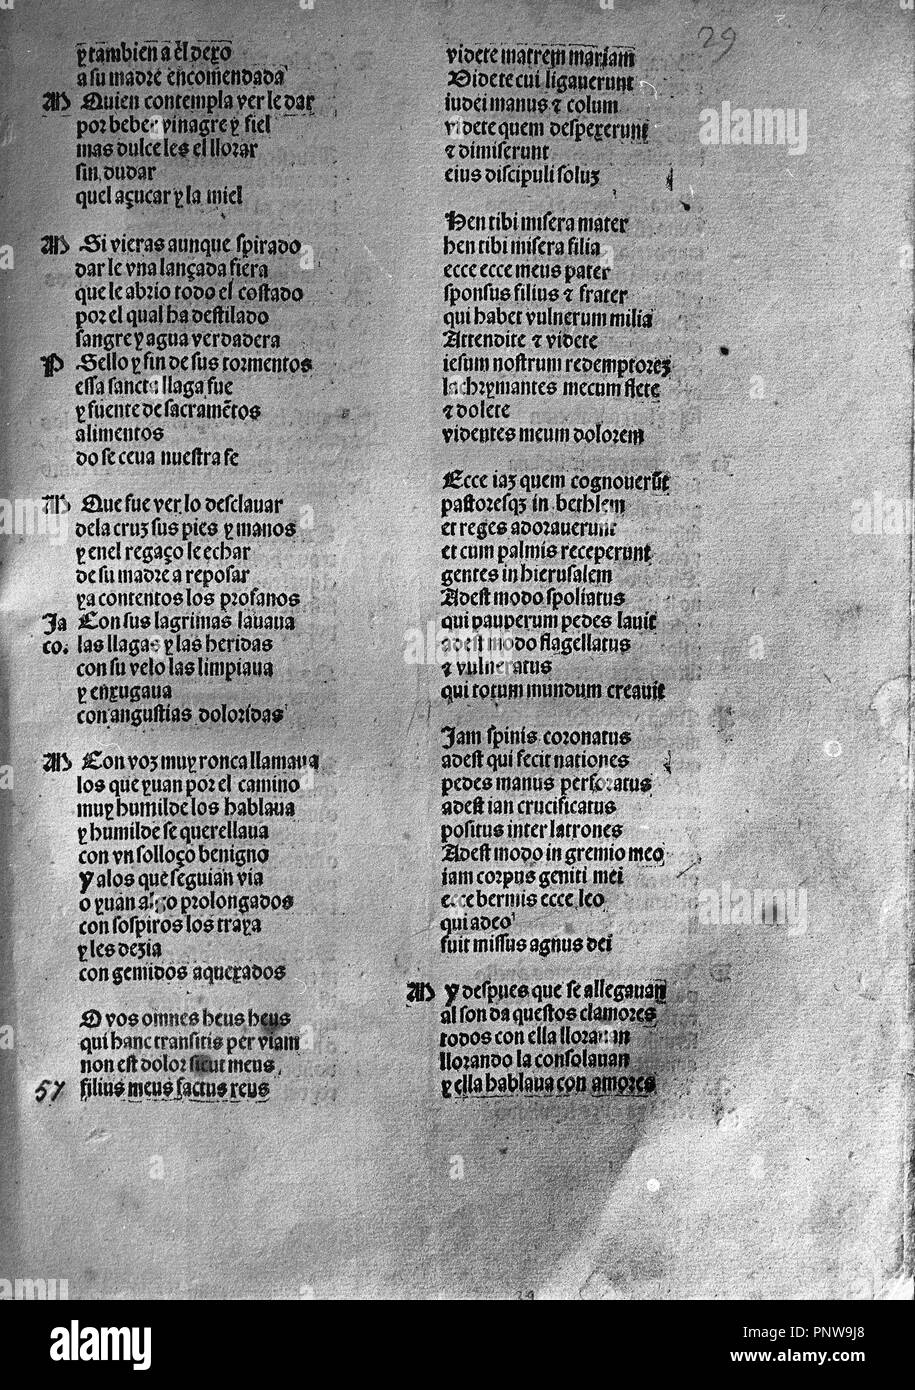 29
y tambien a él dexo
a su madre encomendada
M Quien contempla ver le dar
por beber vinagre y fiel
mas dulce les el llorar
sin dudar
quel açucar y la miel
M Si vieras aunque spirado
dar le vna lançada fiera
que le abrio todo el costado
por el qual ha destilado
sangre y agua verdadera
P Sello y fin de sus tormentos
essa sancta llaga fue
y fuente de sacramẽtos
alimentos
do se ceua nuestra fe
M Que fue ver lo desclauar
dela cruz sus pies y manos
y enel regaço le echar
de su madre a reposar
ya contentos los profanos
Ja Con sus lagrimas lauaua
co. las llagas y las heridas
con su velo las limpiaua
y enxugaua
con angustias doloridas
M Con voz muy ronca llamaua
los que yuan por el camino
muy humilde los hablaua
y humilde se querellaua
con vn solloço benigno
y alos que seguian via
o yuan algo prolongados
con sospiros los traya
y les dezia
con gemidos aquexados
O vos omnes heus heus
qui hanc transitis per viam
non est dolor sicut meus
57 filius meus factus reus
videte matrem mariam
Videte cui ligauerunt
iudei manus ⁊ colum
videte quem despexerunt
⁊ dimiserunt
eius discipuli soluz
Hen tibi misera mater
hen tibi misera filia
ecce ecce meus pater
sponsus filius ⁊ frater
qui habet vulnerum milia
Attendite ⁊ videte
iesum nostrum redemptorez
lachrymantes mecum flete
⁊ dolete
videntes meum dolorem
Ecce iaz quem cognouerũt
pastoresqz in bethlem
et reges adorauerunt
et cum palmis receperunt
gentes in hierusalem
Adest modo spoliatus
qui pauperum pedes lauit
adest modo flagellatus
⁊ vulneratus
qui totum mundum creauit
Jam spinis coronatus
adest qui fecit nationes
pedes manus perforatus
adest ian crucificatus
positus inter latrones
Adest modo in gremio meo
iam corpus geniti mei
ecce bermis ecce leo
qui adeo
fuit missus agnus dei
M y despues que se allegauan
al son da questos clamores
todos con ella llorauan
llorando la consolauan
y ella hablaua con amores
29
alamy
Image ID: PNW9J8
www.alamy.com